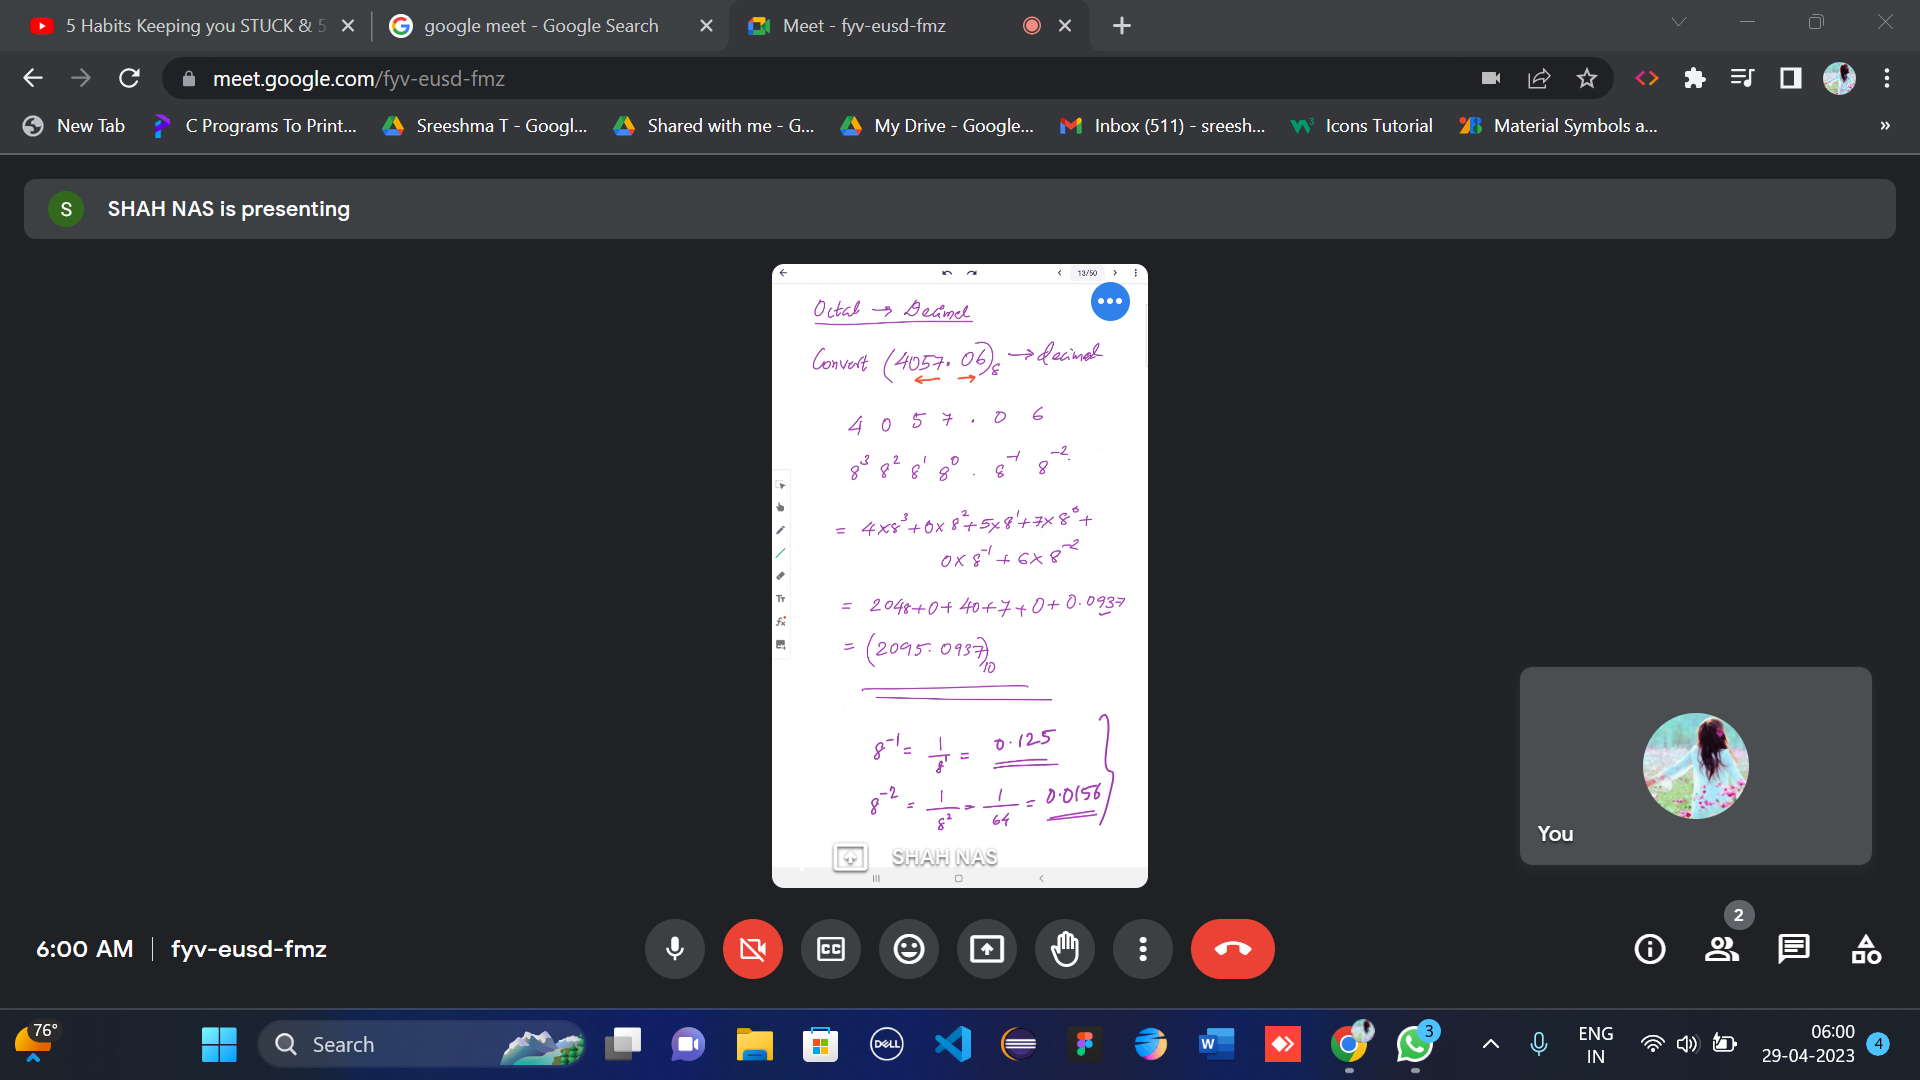 5 Habits Keeping you STUCK & 5
google meet - Google Search
Meet - fyv-eusd-fmz
meet.google.com/fyv-eusd-fmz
New Tab
C Programs To Print...
Sreeshma T - Googl...
Shared with me - G...
My Drive - Google...
Inbox (511) - sreesh...
Icons Tutorial
Material Symbols a...
»
S
SHAH NAS is presenting
13/50
Octal → Decimal
Convert (4057.06)₈ → decimal
4 0 5 7 . 0 6
8³ 8² 8¹ 8⁰ . 8⁻¹ 8⁻²
= 4×8³+0×8²+5×8¹+7×8⁰+
0×8⁻¹+6×8⁻²
= 2048+0+40+7+0+0.0937
= (2095.0937)₁₀
8⁻¹ = 1/8¹ = 0.125
8⁻² = 1/8² = 1/64 = 0.0156
Tт
fx
SHAH NAS
You
2
6:00 AM | fyv-eusd-fmz
CC
76°
Search
DELL
W
3
ENG
IN
06:00
29-04-2023
4